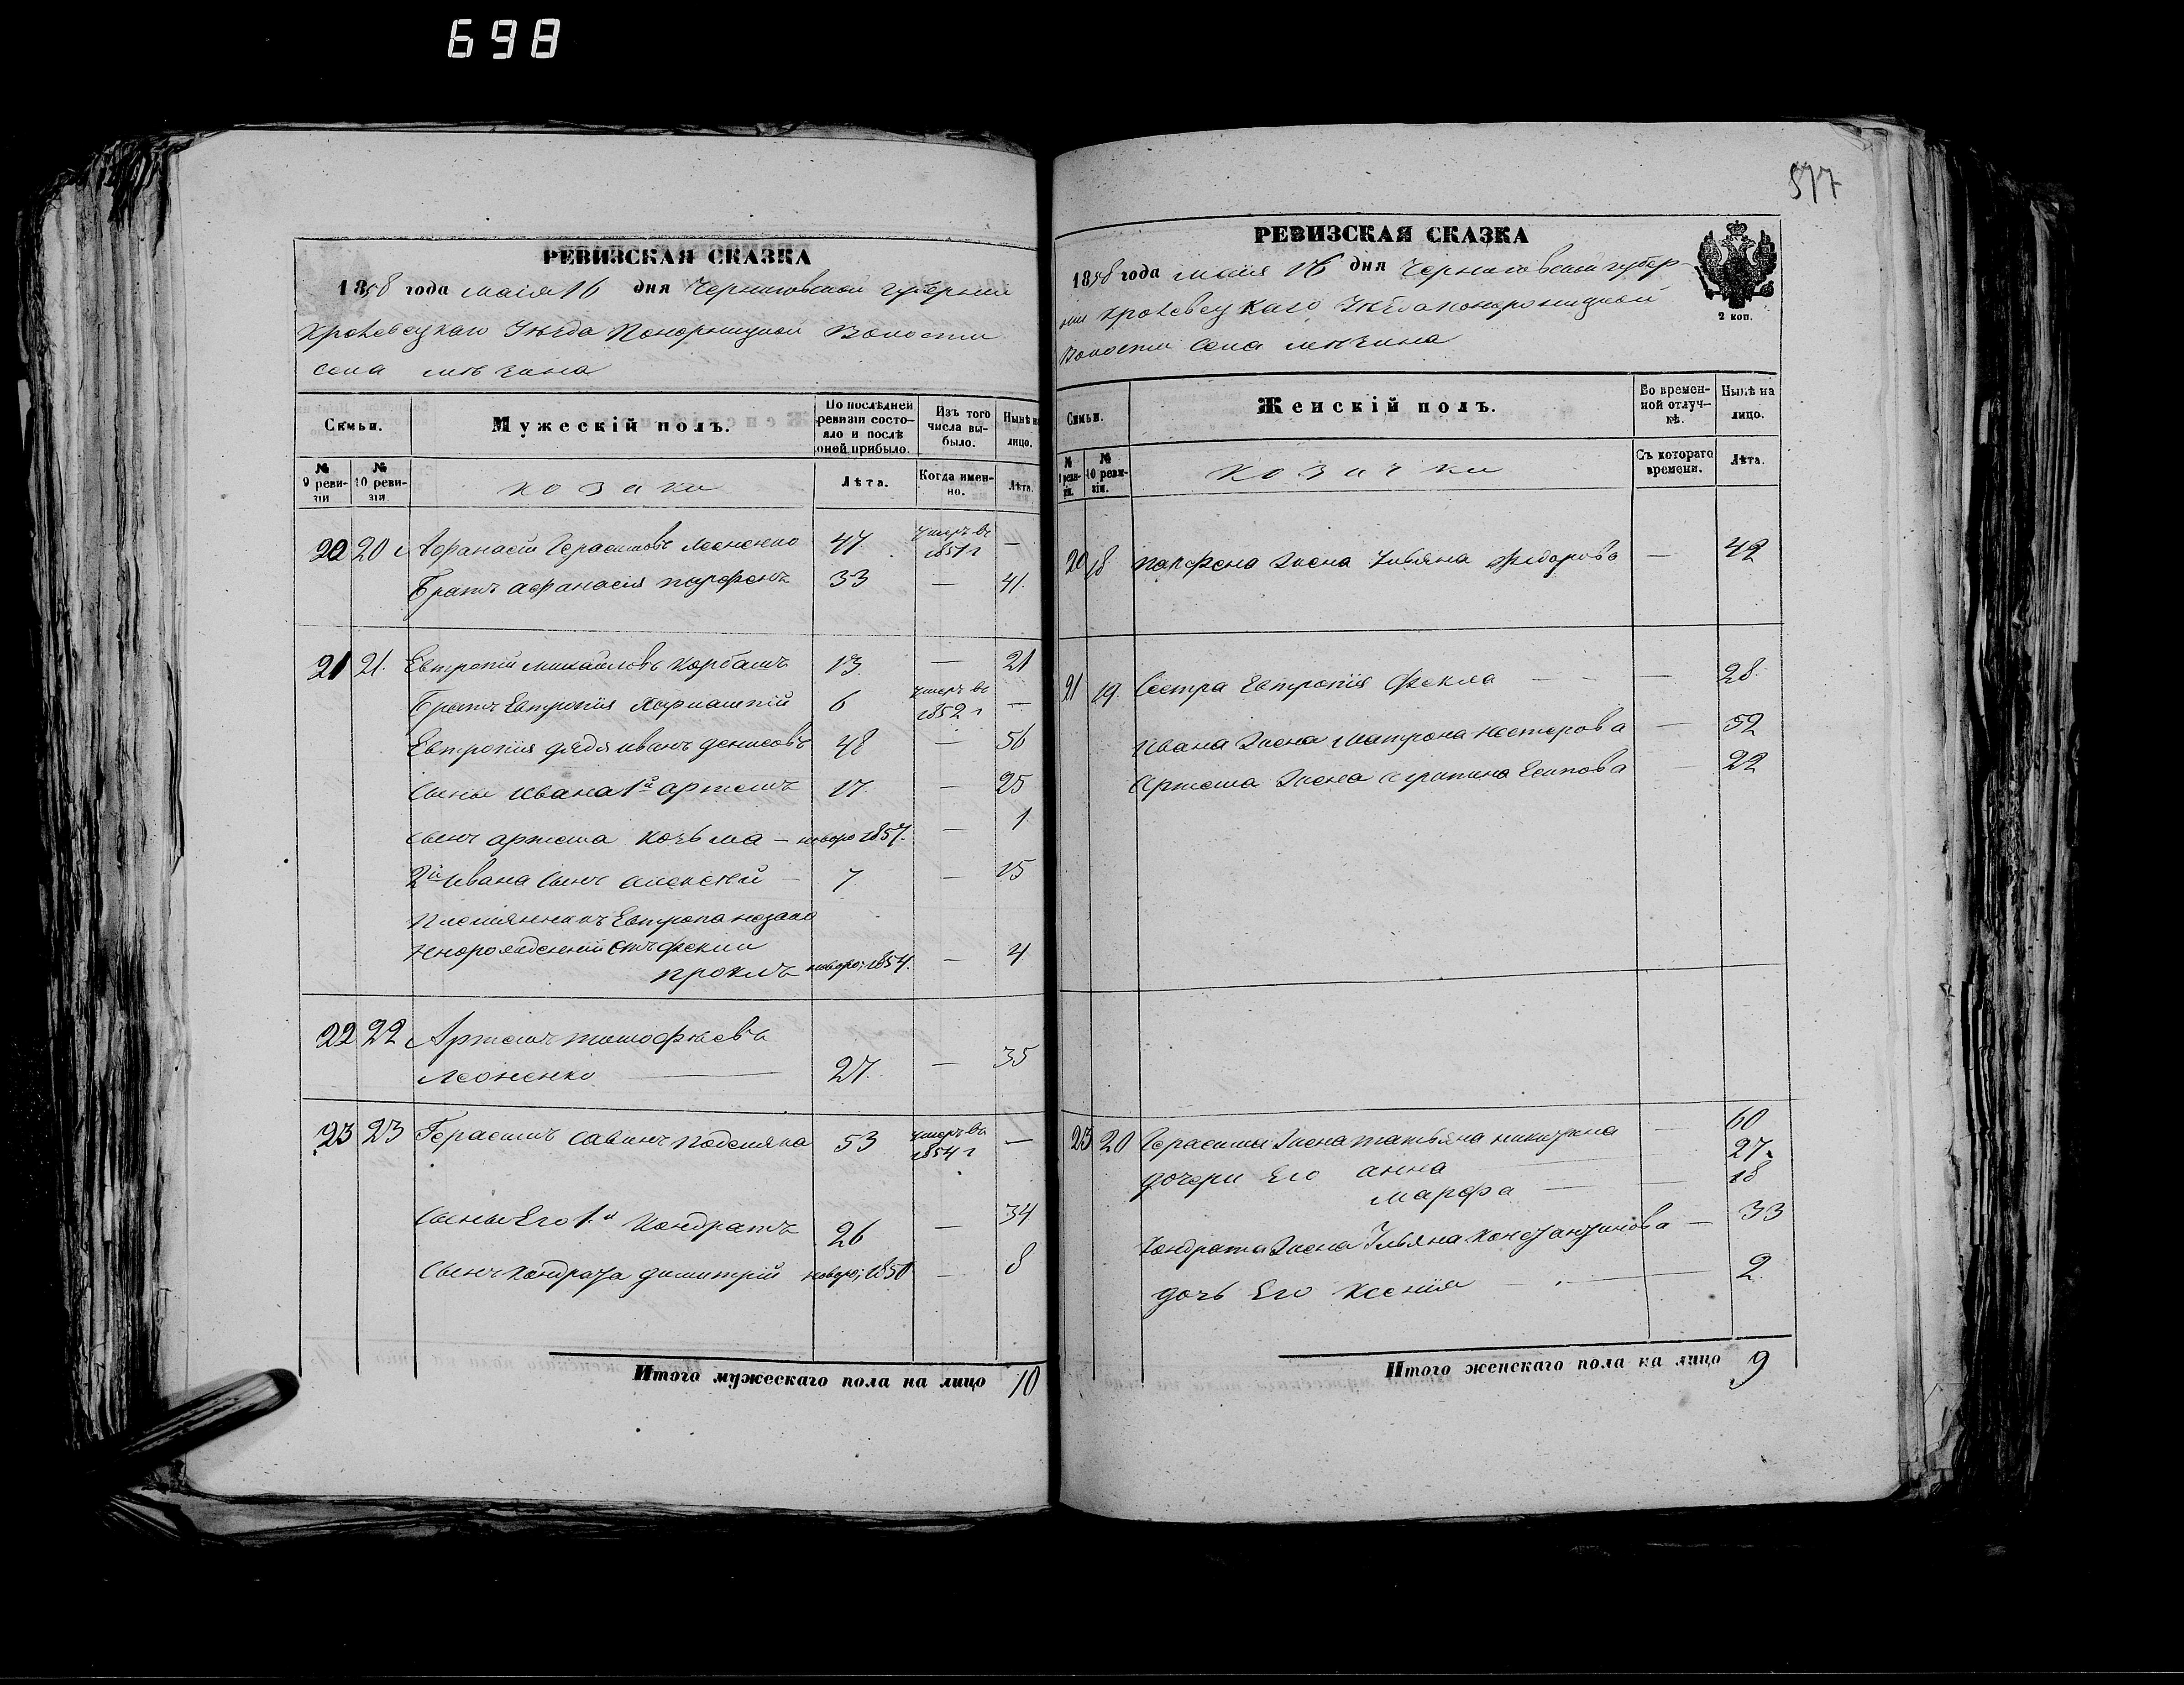 698
577
РЕВИЗСКАЯ СКАЗКА
1858 года маія 16 дня Черниговской губерніи
Кролевецкаго Уѣзда Понорницкой Волости
села мѣзина
Семьи.
Мужескій полъ.
По послѣдней ревизіи состояло и послѣ оней прибыло.
Изъ того числа выбыло.
Нынѣ на лицо.
№ 9 ревизіи
№ 10 ревизіи.
козаки
Лѣта.
Когда именно.
Лѣта.
20 20 Афанасій Герасимовъ Леоненко 47. умеръ въ 1851 г —
Братъ афанасія парфенъ 33 — 41.
21 21. Евтропій михайловъ Корбачъ 13. — 21
Братъ Евтропія 6 умеръ въ 1852 г —
Евтропія дядя иванъ денисовъ 48 — 56
Сыны ивана 1й артемъ 17. — 25
сынъ артема козьма — новоро 1857. — 1
2й Ивана Сынъ алексей — 7 — 15
Племянникъ Евтропа незако
ннорожденній отъ фекли
проклъ новоро; 1854. — 4
22 22 Артемъ тимофѣевъ
Леоненко 27. — 35
23 23 Герасимъ савинъ 53 умеръ въ 1854 г —
Сыны Его 1.й Кондратъ 26 — 34
Сынъ Кондрата димитрій новоро; 1850 — 8
Итого мужескаго пола на лицо 10
РЕВИЗСКАЯ СКАЗКА
1858 года маія 16 дня Черниговской губер
ніи Кролевецкаго Уѣзда Понорницкой
Волости Села мѣзина
2 коп.
Семьи.
Женскій полъ.
Во временной отлучкѣ.
Нынѣ на лицо.
№ 9 ревизіи.
№ 10 ревизіи.
козачки
Съ котораго времени.
Лѣта.
20 18 парфена жена Ульяна Федорова — 42
21 19. Сестра Евтропія Фекла — — 28.
Ивана жена матрона нестерова — 52
Артема жена агрипина Есипова — 22
23 20 Герасима жена татьяна никитина — 60
дочери Его анна 27.
марфа — — 18
Кондрата жена Ульяна Константинова — 33
дочь Его Ксенія — 2.
Итого женскаго пола на лицо 9